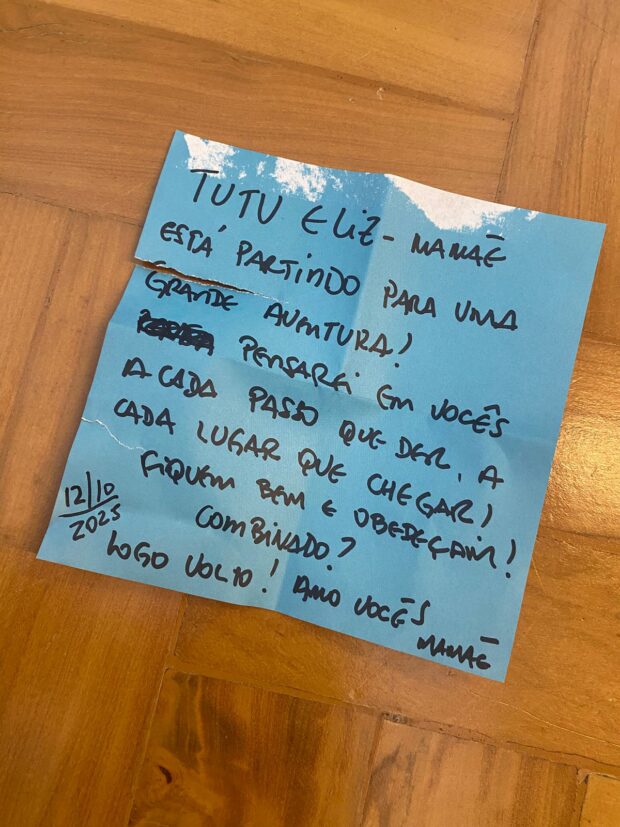 TUTU E LIZ - MAMÃE
ESTÁ PARTINDO PARA UMA
GRANDE AVENTURA!
PENSAREI EM VOCÊS
A CADA PASSO QUE DER, A
CADA LUGAR QUE CHEGAR!
FIQUEM BEM E OBEDEÇAM!
COMBINADO?
12/10
2025
LOGO VOLTO! AMO VOCÊS
MAMÃE